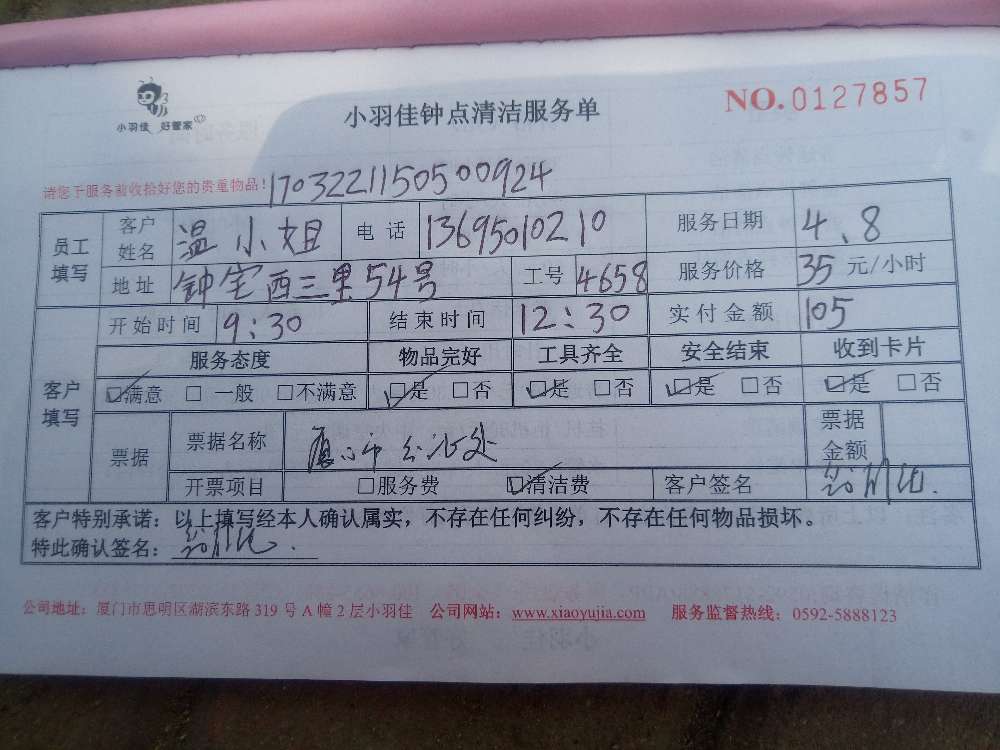 小羽佳 好管家
小羽佳钟点清洁服务单
NO.0127857
请您于服务前收拾好您的贵重物品!1703221150500924
员工填写 客户姓名 温小姐 电话 13695010210 服务日期 4.8
地址 钟宅西三里54号 工号 4658 服务价格 35 元/小时
客户填写 开始时间 9:30 结束时间 12:30 实付金额 105
服务态度 物品完好 工具齐全 安全结束 收到卡片
☑满意 □一般 □不满意 ☑是 □否 ☑是 □否 ☑是 □否 ☑是 □否
票据 票据名称 厦门市 处 票据金额
开票项目 □服务费 ☑清洁费 客户签名
客户特别承诺：以上填写经本人确认属实，不存在任何纠纷，不存在任何物品损坏。
特此确认签名：
公司地址：厦门市思明区湖滨东路319号A幢2层小羽佳 公司网站：www.xiaoyujia.com 服务监督热线：0592-5888123